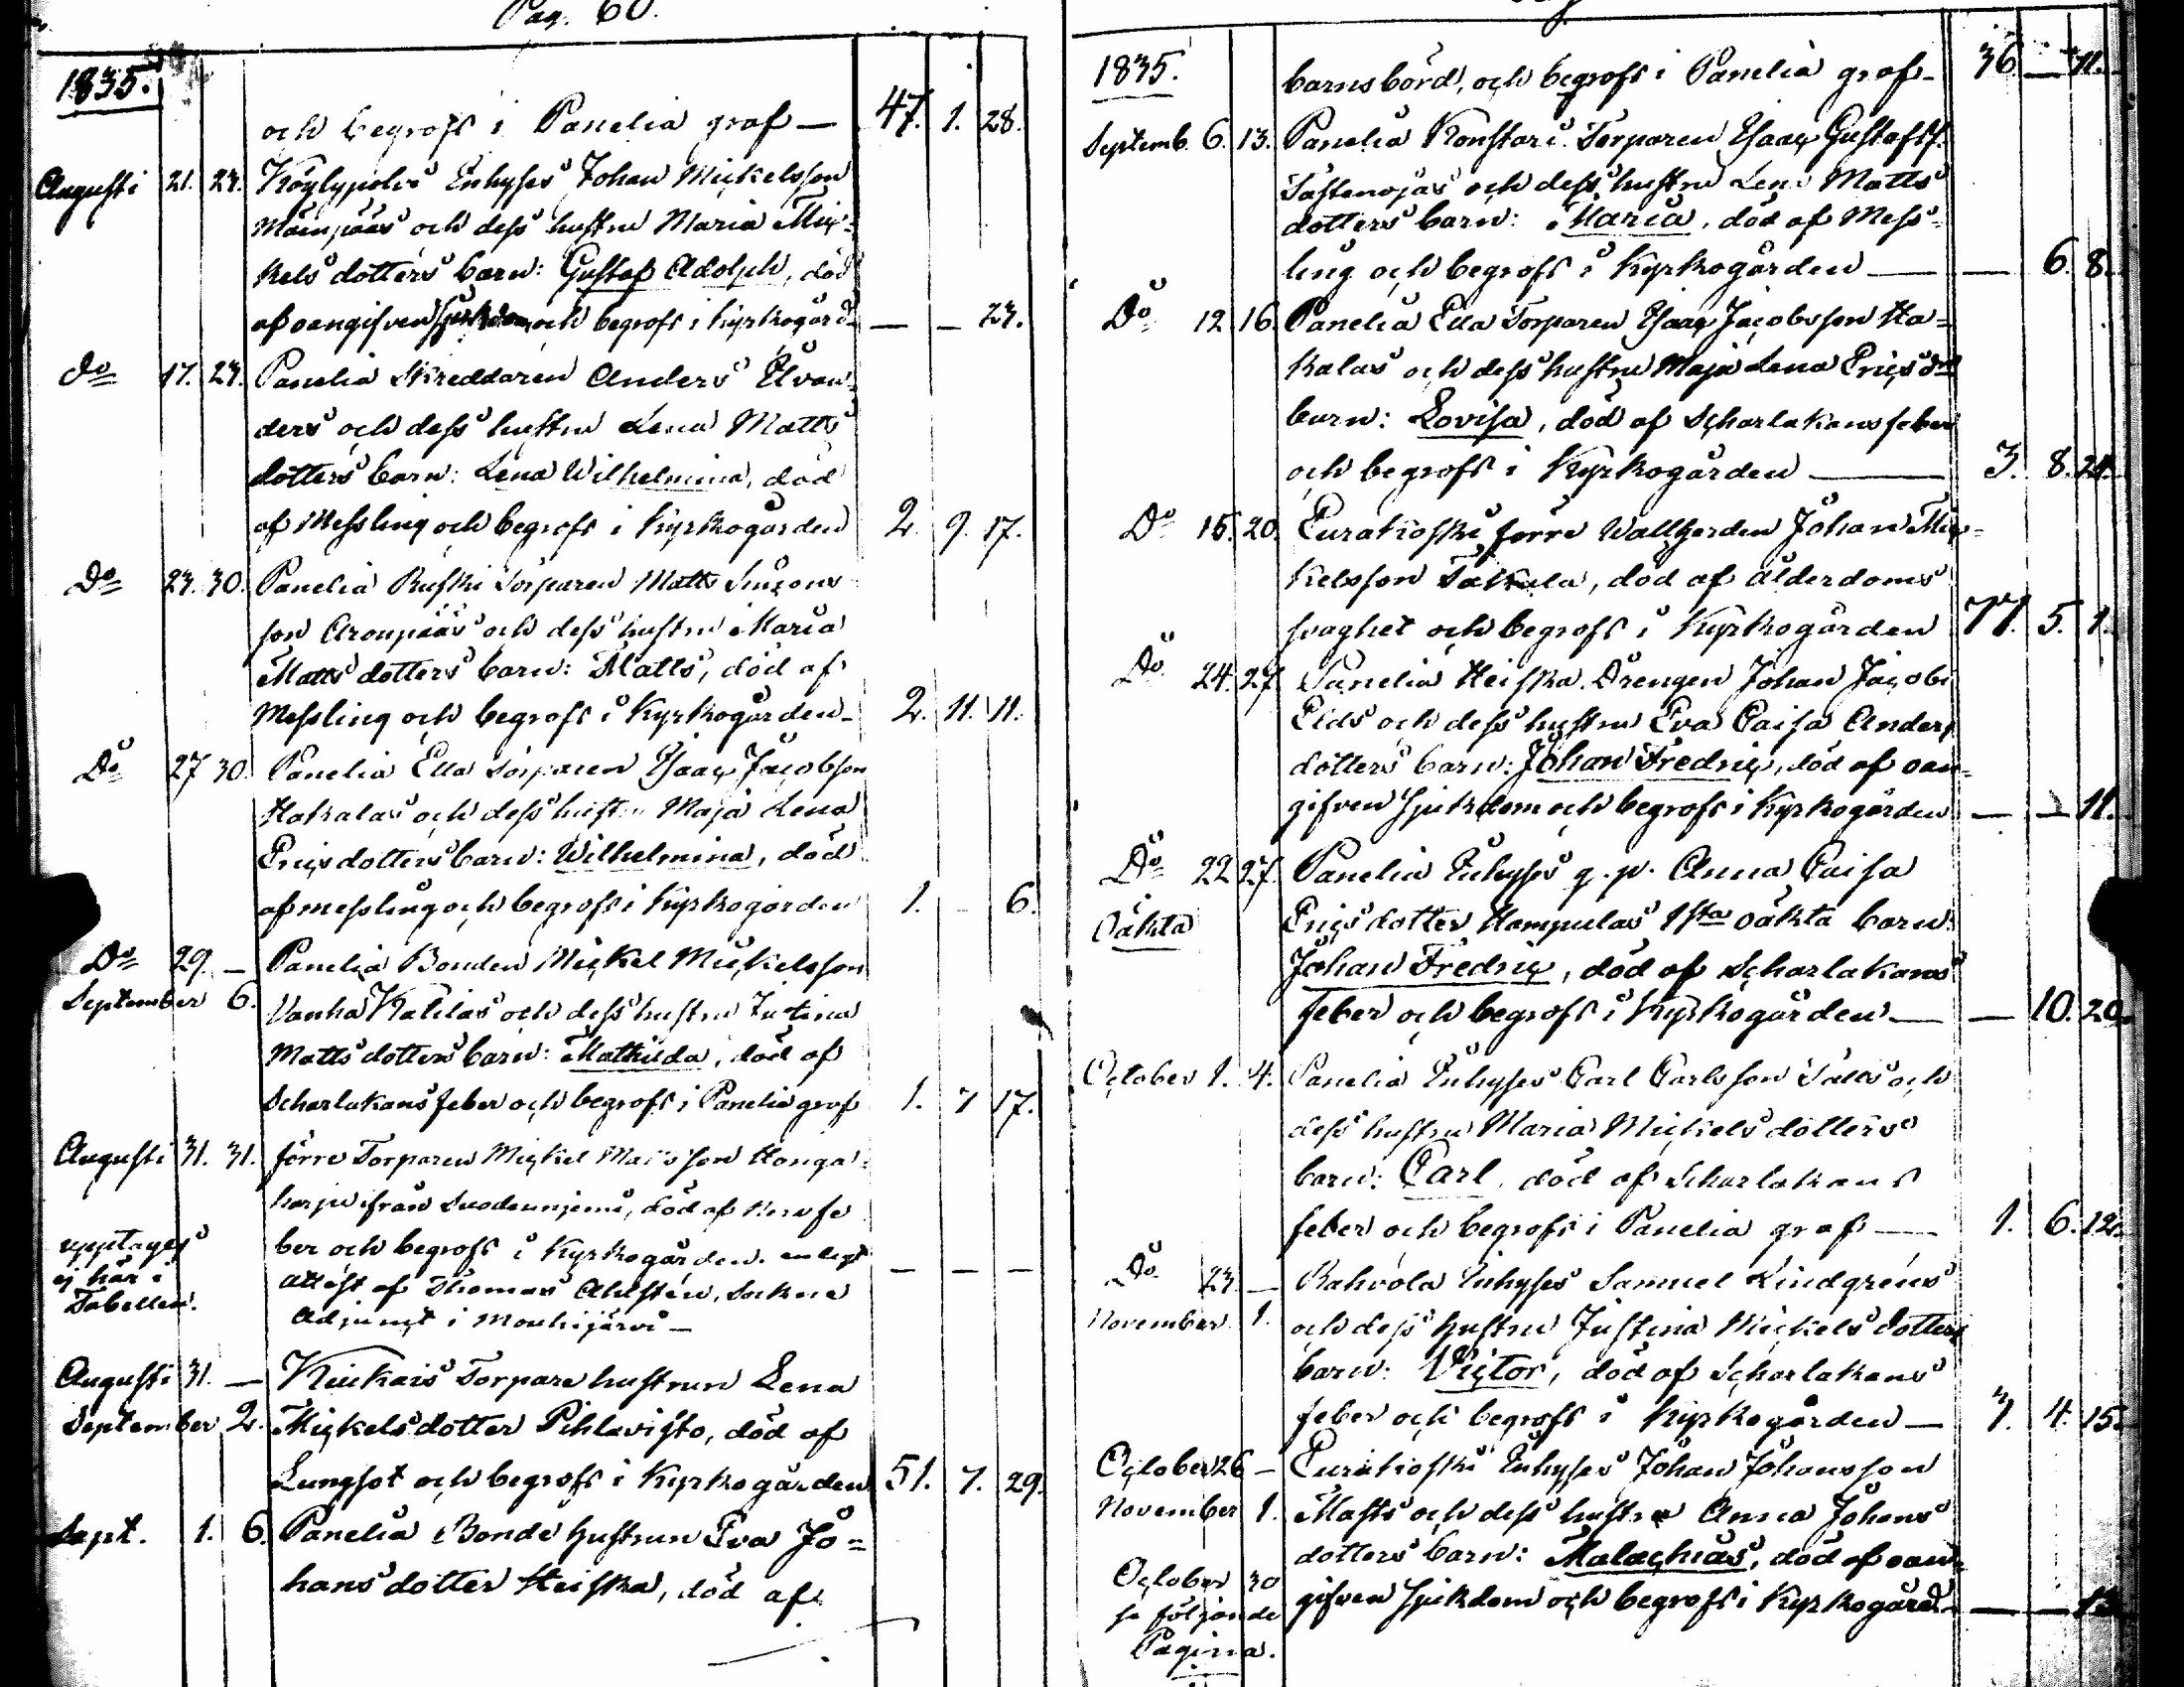 Pag. 60.
1835.
och begrofs i Panelia graf — 47. 1. 28.
Augusti 21. 24. Köylypolvis Inhyses Johan Mickelsson
Mäenpääs och dess hustru Maria Mic-
kels dotters barn: Gustaf Adolph, död
af oangifven sjukdom och begrofs i kyrkogård — — 24.
Do 17. 24. Panelia Skreddaren Anders Elvan-
ders och dess hustru Lena Matts
dotters barn: Lena Wilhelmina, död
af Messling och begrofs i Kyrkogården 2. 9. 17.
Do 24. 30. Panelia Ruski Torparen Matts Simons
son Aronpääs och dess hustru Maria
Matts dotters barn: Matts, död af
Messling och begrofs i Kyrkogården. 2. 11. 11.
Do 27 30. Panelia Ella Torparen Isaac Jacobson
Hakalas och dess hustru Maja Lena
Ericsdotters barn: Wilhelmina, död
af messling och begrofs i Kyrkogården 1. — 6.
Do 29. — Panelia Bonden Mickel Mickelsson
September 6. Vanha Katilas och dess hustru Justina
Matts dotters barn: Mathilda, död af
Scharlakansfeber och begrofs i Panelia graf 1. 7 17.
Augusti 31. 31. förre Torparen Mickel Matsson Honga-
harju ifrån Suodenniemi, död af
upptages ber och begrofs i Kyrkogården. enligt
ej här i attest af Thomas Ahlstén, Sockne — — —
Tabellen. Adjunct i Mouhijärvi —
Augusti 31. — Kiukais Torpare hustrun Lena
September 2. Mickelsdotter Pihlavisto, död af
Lungsot och begrofs i Kyrkogården 51. 7. 29.
Sept. 1. 6. Panelia Bonde hustrun Eva Jo=
hans dotter Heiska, död af
1835. barnsbörd, och begrofs i Panelia graf — 36 — 11.
Septemb. 6. 13. Panelia Konstari Torparen Isaac Gustafss.
Sastenojas och dess hustru Lena Matts
dotters barn: Maria, död af Mess-
ling och begrofs i Kyrkogården — — 6. 8.
Do 12 16. Panelia Ella Torparen Isaac Jacobsson Ha=
kalas och dess hustru Maja Lena Erics drs
barn: Lovisa, död af Scharlakansfeber
och begrofs i Kyrkogården — 3. 8. 24.
Do 15. 20. Eurakoski förre Wallgerden Johan Mic-
kelsson Takkula, död af ålderdoms
svaghet och begrofs i Kyrkogården 77. 5. 1.
Do 24. 27. Panelia Heiska Drengen Johan Jacobs
Elds och dess hustru Eva Caisa Anders
dotters barn: Johan Fredric, död af oan-
gifven sjukdom och begrofs i Kyrkogården — — 11.
Do 22 27. Panelia Inhyses q. p. Anna Caisa
Oäkta Erics dotter Hampulas 1sta oäkta barn:
Johan Fredric, död af Scharlakans
feber och begrofs i Kyrkogården — — 10. 20.
October 1. 4. Panelia Inhyses Carl Carlsson och
dess hustru Maria Mickels dotters
barn: Carl, död af Scharlakans
feber och begrofs i Panelia graf — 1. 6. 12.
Do 23. — Rahvola Inhyses Samuel Lindgrens
November 1. och dess hustru Justina Mickels dotters
barn: Victor, död af Scharlakans
feber och begrofs i Kyrkogården — 7. 4. 15.
October 26 — Eurakoski Inhyses Johan Johansson
November 1. Masts och dess hustru Anna Johans
dotters barn: Malachias, död af oan-
October 30 gifven sjukdom och begrofs i Kyrkogård — — 13
se följande
Pagina.